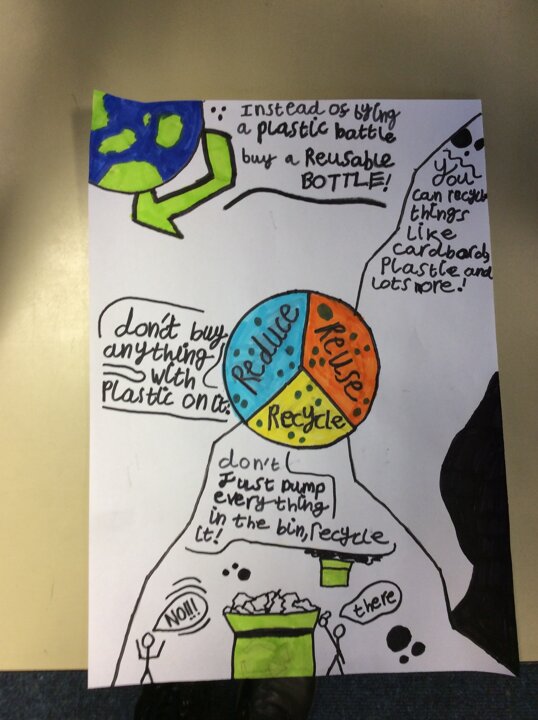 Instead of bying
a plastic battle
buy a Reusable
BOTTLE!
You
can recycle
things
Like
cardboards
Plastic and
Lots more!
don't buy
anything
with
Plastic on it!
Reduce
Reuse
Recycle
don't
Just pump
everything
in the bin, recycle
it!
NO!!!
there